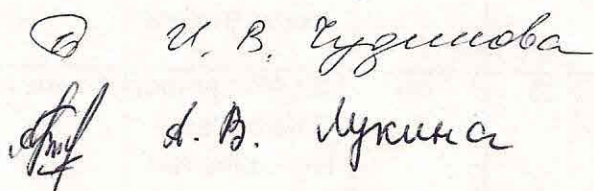 И. В. Чудинова
А. В. Лукина